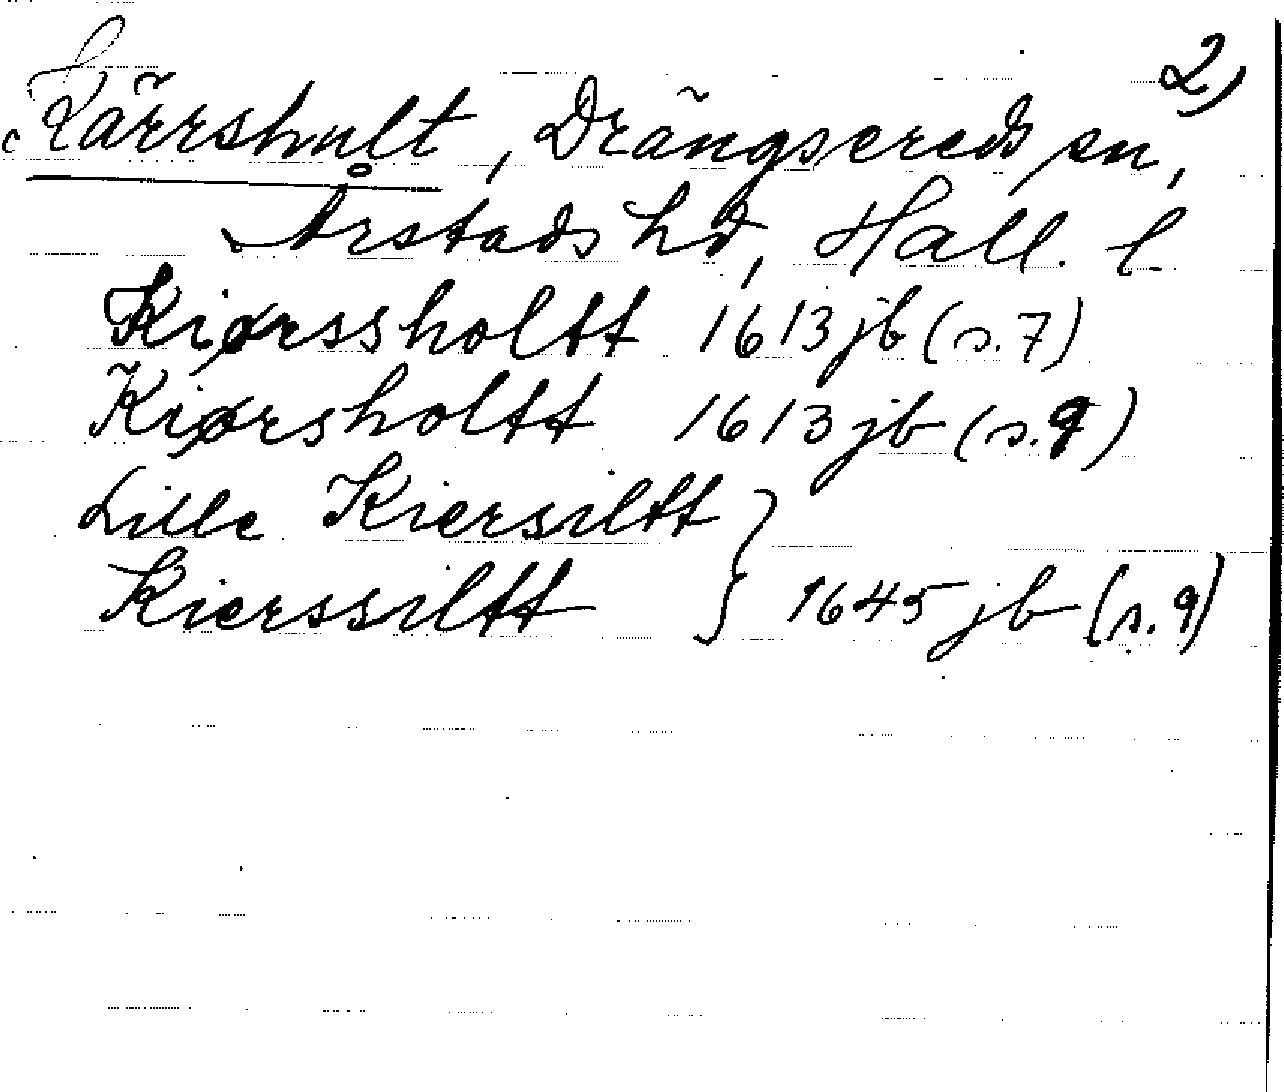 2)
Kärrshult, Drängsereds sn,
Årstads hd, Hall. l.
Kiørssholtt 1613 jb (s. 7)
Kiørsholtt 1613 jb (s. 9)
Lille Kiersiltt }
Kierssiltt } 1645 jb (s. 9)